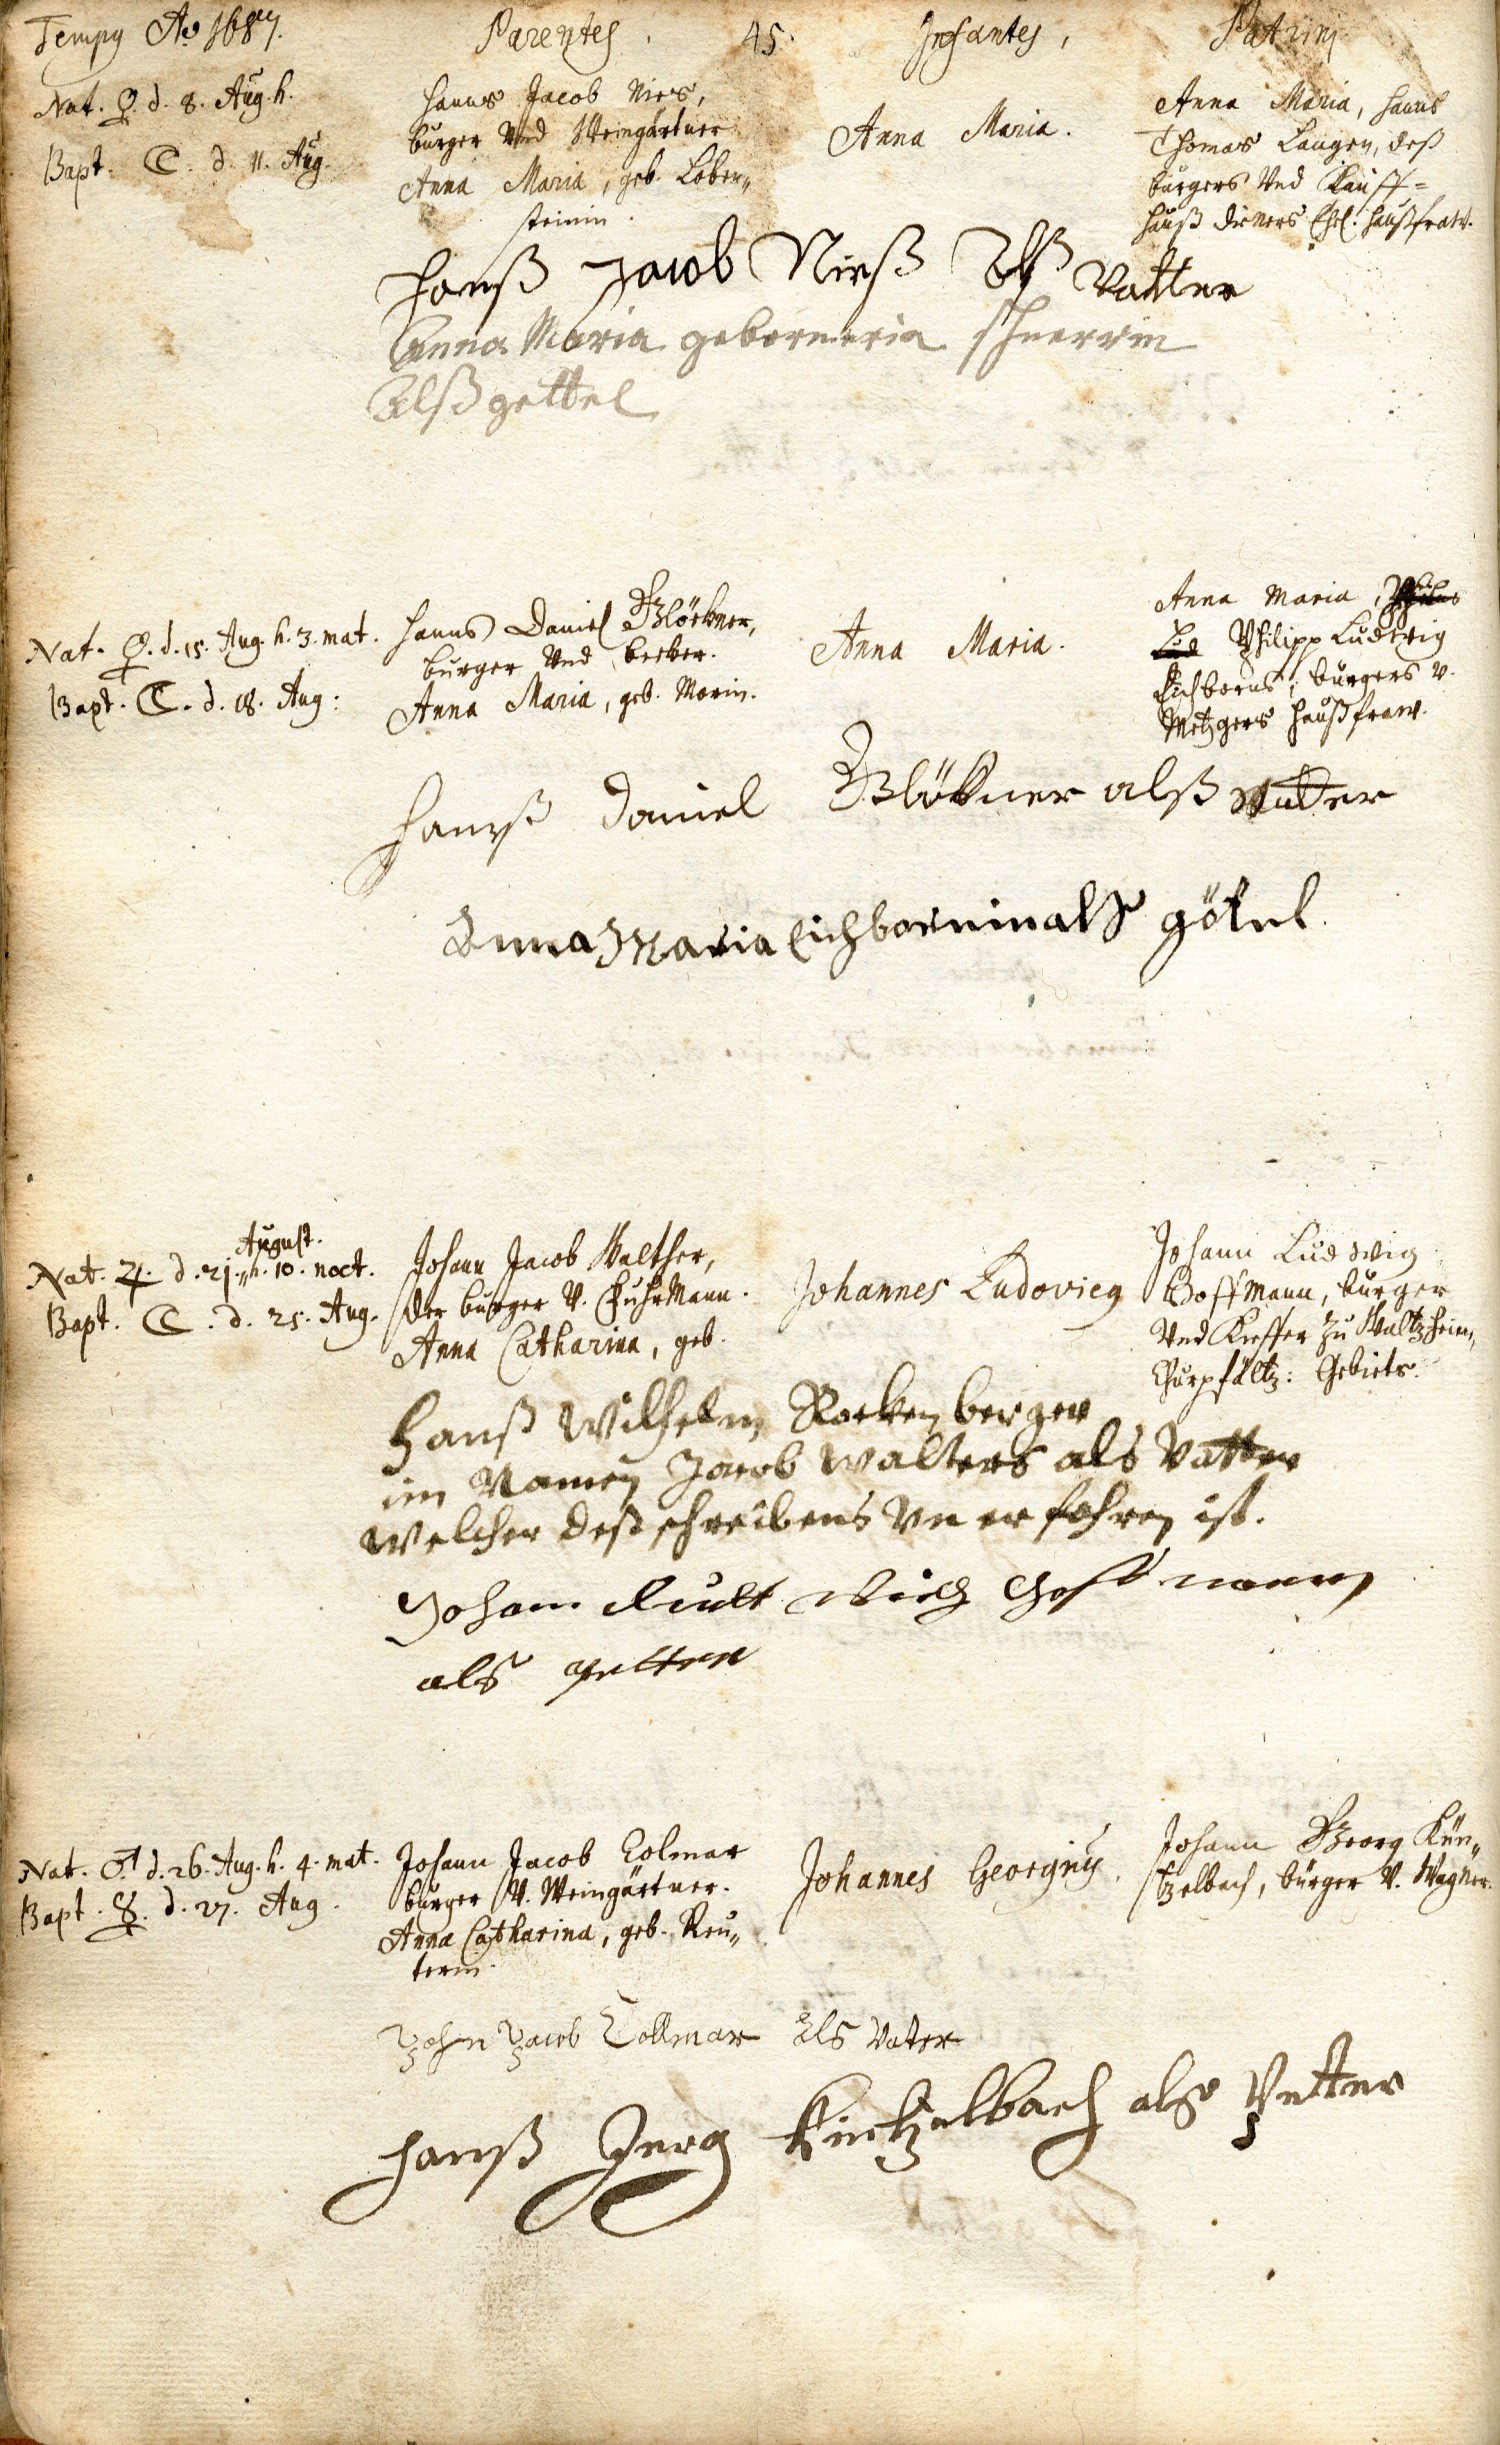 Tempg Ao. 1687. Parentes. 45. Infantes, Patrinj
Nat. ♀. d. 8. Aug. h.
Bapt. ☾. d. 11. Aug.
Hanns Jacob Nies,
burger Vnd Weingärtner
Anna Maria, geb. Leber„
steinin.
Anna Maria.
Anna Maria, Hanns
Thomas Langen, deß
burgers Vnd Kauff=
hauß dieners Ehel. haußfraw.
Hanß Jacob Nieß Alß Vatter
Anna Maria geborneria
Alß gettel
Nat. ♀. d. 15. Aug. h. 3. mat.
Bapt. ☾. d. 18. Aug:
Hanns Daniel Glöckner,
burger Vnd becker.
Anna Maria, geb. Morin.
Anna Maria.
Anna Maria,
Lud Philipp Ludwig
Eichborns, burgers v.
Metzgers haußfraw.
Hanß Daniel Glökner alß Vatter
Anna Maria Eichbornin alß götel.
August.
Nat. ♃. d. 21. „h. 10. noct.
Bapt. ☾. d. 25. Aug.
Johann Jacob Walther,
der burger V. Fuhrmann.
Anna Catharina, geb.
Johannes Ludovicg
Johann Ludwig
Hoffmann, burger
Vnd Kieffer zu Waltzheim„
Churpfältz: Gebiets.
Hanß Wilhelm Rockenberger
im Namen Jacob Walters als Vatter
Welcher deß schreibens Vnerfahren ist.
Johan Lutt wich Hoffmann
als getter
Nat. ♂. d. 26. Aug. h. 4. mat.
Bapt. ☿. d. 27. Aug.
Johann Jacob Colmar
burger V. Weingärtner.
Anna Catharina, geb. Reu„
terin.
Johannes Georgiug.
Johann Georg Kün„
tzelbach, bürger V. Wagner.
John Jacob Collmar Als Vater
Hanß Jerg Kintzelbach alß Petter